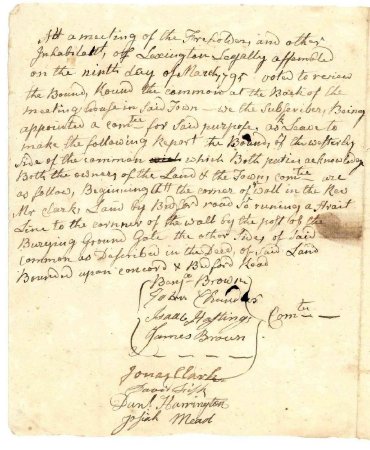 At a meeting of the Freholders and other
Inhabitants off Lexington Legally assembled
on the ninth Day of March, 795 voted to review
the Bounds Round the common at the Back of the
meeting House in Said Town – we the Subscribers Being
appointed a comtee for Said purpose ask Leave to
make the following Report the Bounds of the westerly
Side of the common which Both parties acknowledg
Both the owners of the Land & the Towns comtee are
as follows, Beginning att the corner of wall in the Rev
Mr Clarks Land by Bedford road So runing a strait
Line to the cornner of the wall by the post of the
Burying Ground Gate the other Sides of Said
common as Described in the Deed of Said Land
Bounded upon concord & Bedford Road
Benja Brown
John Chandler
Isaac Hastings
James Brown
Comtee
Jonas Clark
David Fisk
Danl Harrington
Josiah Mead